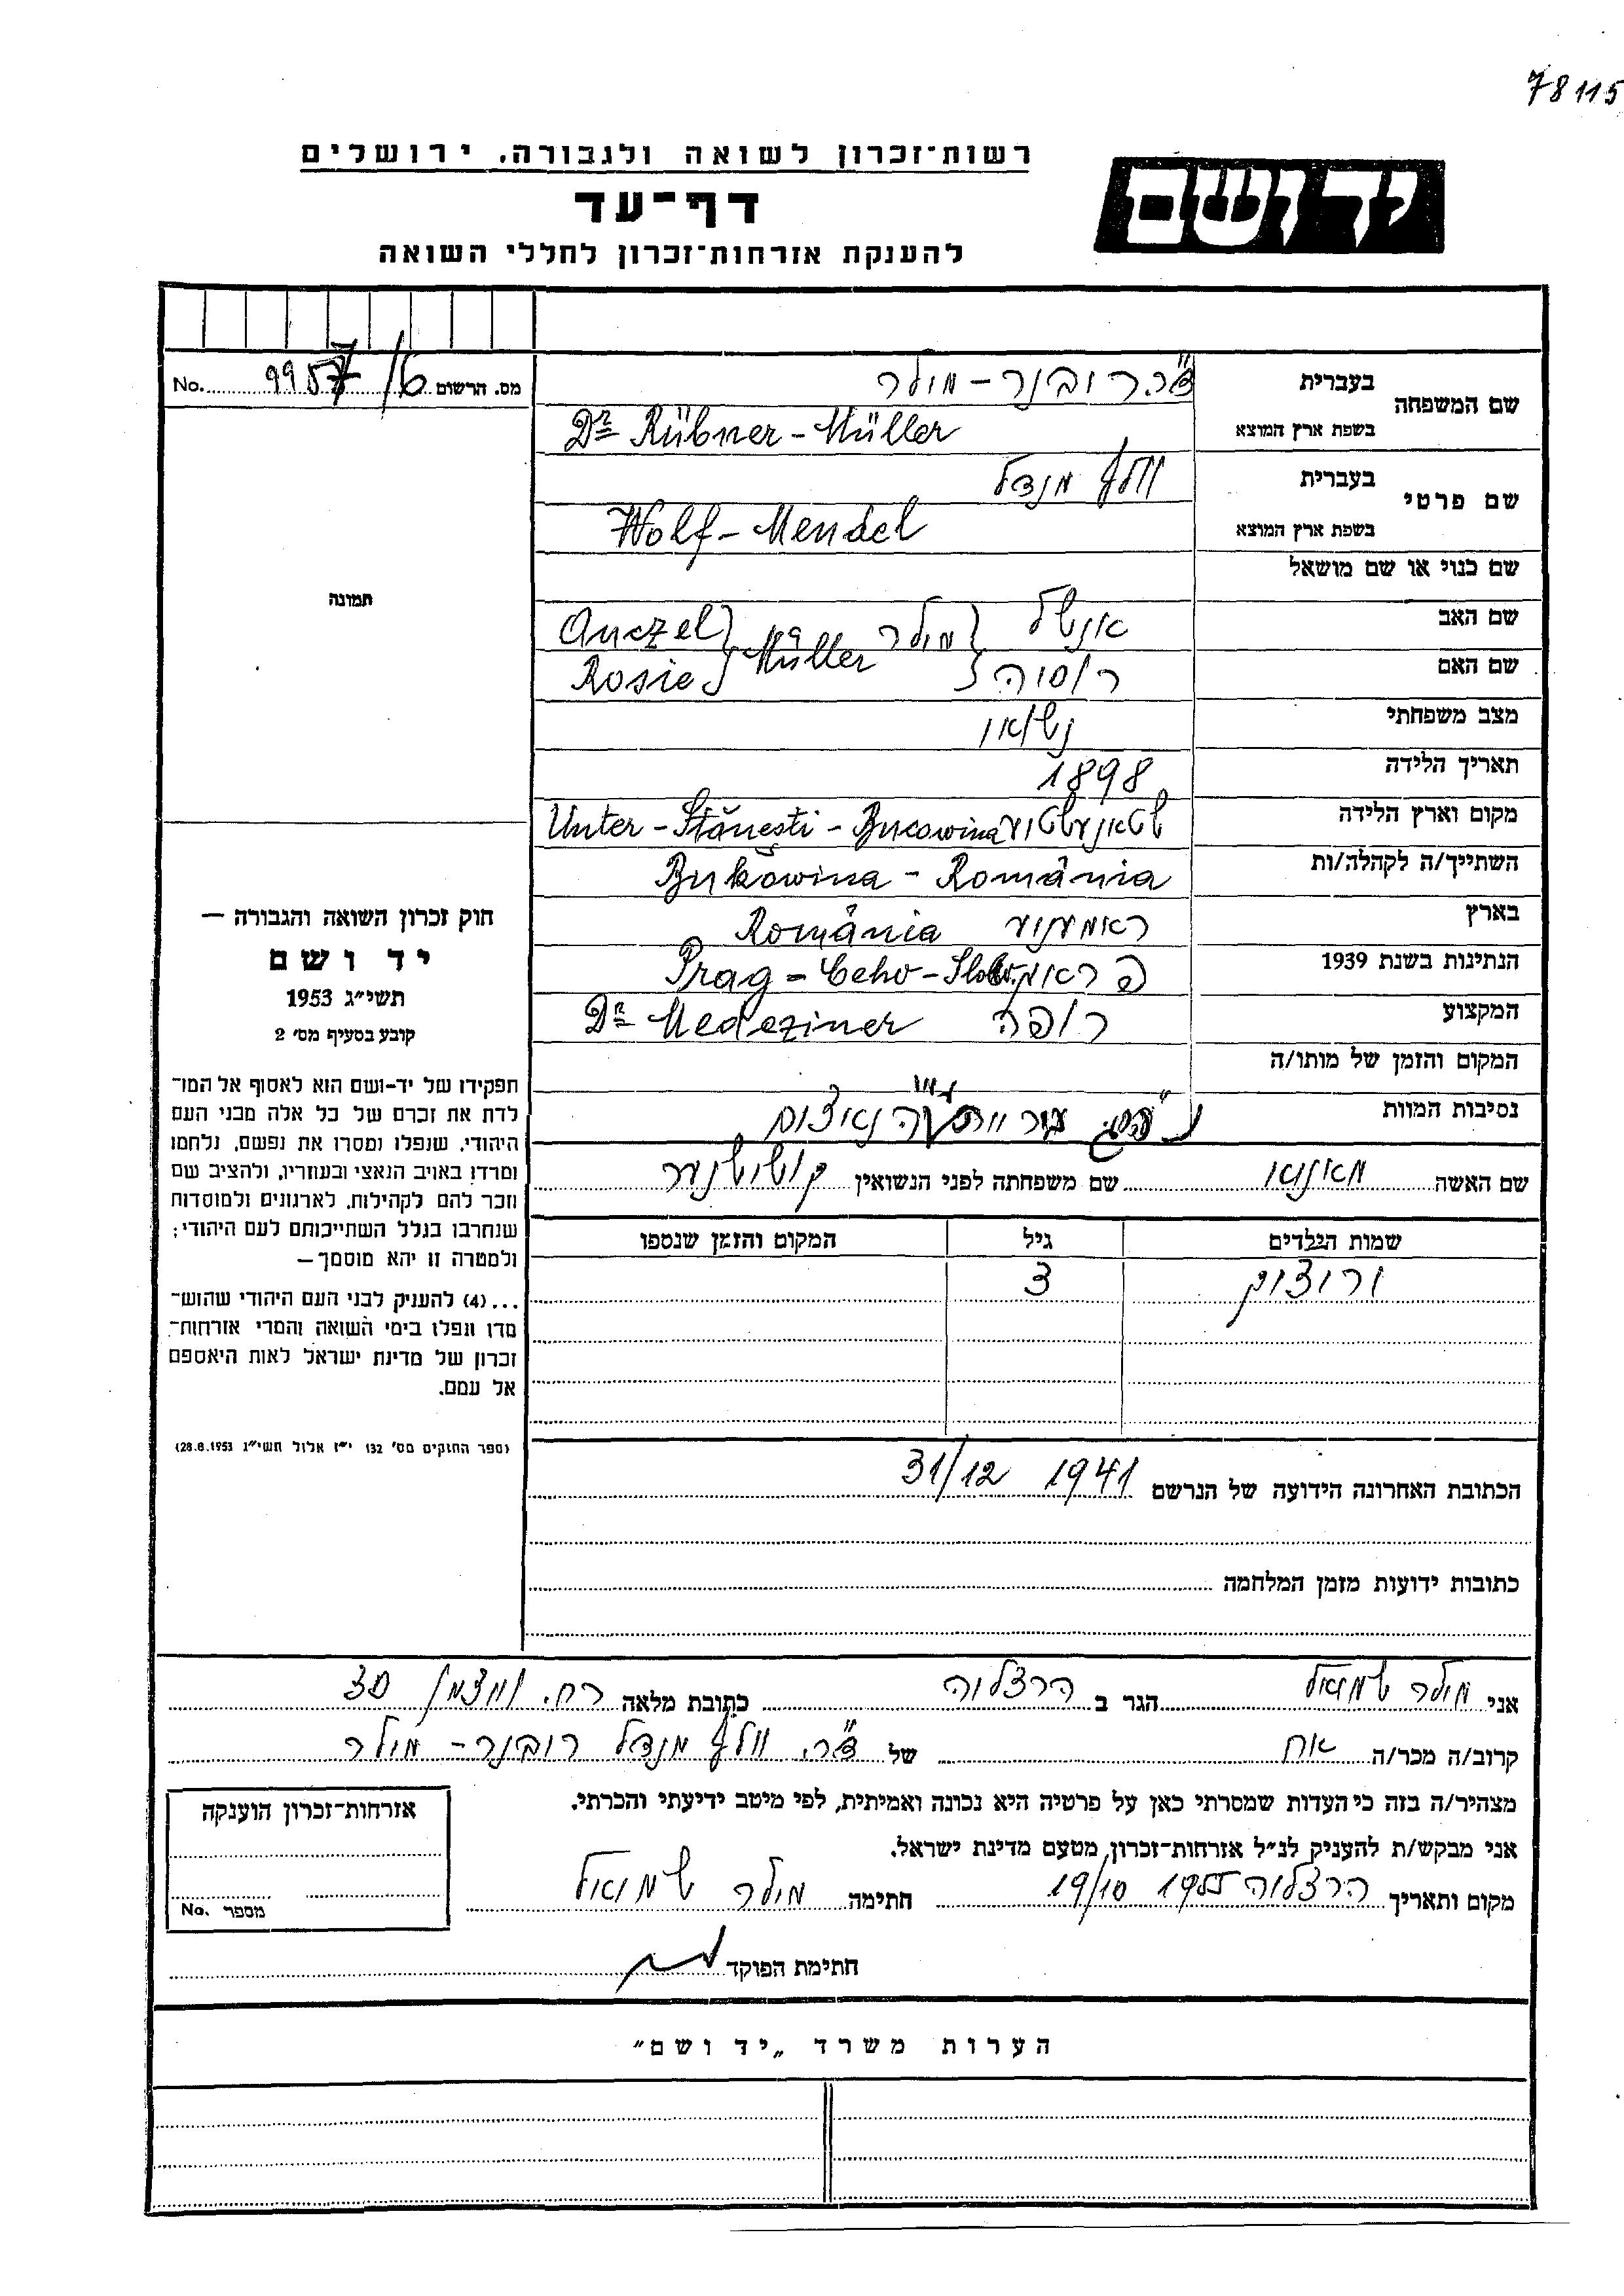 78115
רשות־זכרון לשואה ולגבורה, ירושלים
יד ושם
דף־עד
להענקת אזרחות־זכרון לחללי השואה
No. 9957/6 מס. הרשום
שם המשפחה בעברית ד"ר. רובנר - מולר
בשפת ארץ המוצא Dr Rübner - Müller
שם פרטי בעברית וולף מנדל
בשפת ארץ המוצא Wolf - Mendel
שם כנוי או שם מושאל
שם האב אנשל Anczel
מולר Müller
שם האם רוסיה Rosie
מצב משפחתי נשוי
תאריך הלידה 1898
מקום וארץ הלידה Unter - Stănesti - Bucowina
השתייך/ה לקהלה/ות Bukowina - România
בארץ România
הנתינות בשנת 1939 פראג Prag - Ceho - Slov.
המקצוע רופה Dr Mediziner
המקום והזמן של מותו/ה
נסיבות המוות נאצים
שם האשה שם משפחתה לפני הנשואין
שמות הילדים גיל המקום והזמן שנספו
3
הכתובת האחרונה הידועה של הנרשם 1941 31/12
כתובות ידועות מזמן המלחמה
תמונה
חוק זכרון השואה והגבורה —
יד ושם
תשי״ג 1953
קובע בסעיף מס׳ 2
תפקידו של יד-ושם הוא לאסוף אל המו־
לדת את זכרם של כל אלה מבני העם
היהודי, שנפלו ומסרו את נפשם, נלחמו
ומרדו באויב הנאצי ובעוזריו, ולהציב שם
וזכר להם לקהילות, לארגונים ולמוסדות
שנחרבו בגלל השתייכותם לעם היהודי;
ולמטרה זו יהא מוסמך —
...(4) להענק לבני העם היהודי שהוש־
מדו ונפלו בימי השואה והמרי אזרחות־
זכרון של מדינת ישראל לאות היאספם
אל עמם.
(ספר החוקים מס׳ 132 י״ז אלול תשי״ג 28.8.1953)
אני מולר שמואל הגר ב הרצליה כתובת מלאה רח. ויצמן 30
קרוב/ה מכר/ה אח של ד"ר. וולף מנדל רובנר - מולר
מצהיר/ה בזה כי העדות שמסרתי כאן על פרטיה היא נכונה ואמיתית, לפי מיטב ידיעתי והכרתי.
אני מבקש/ת להעניק לנ״ל אזרחות־זכרון מטעם מדינת ישראל.
מקום ותאריך הרצליה 1955 19/10 חתימה מולר שמואל
חתימת הפוקד
אזרחות־זכרון הוענקה
No. מספר
הערות משרד „יד ושם״